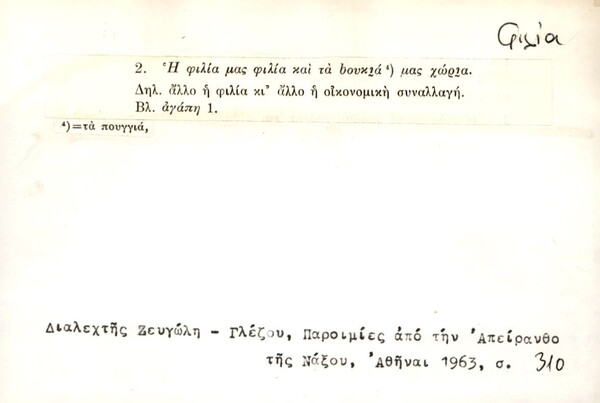 Φιλία
2. Ἡ φιλία μας φιλία καὶ τὰ bουκιά ⁴) μας χώρια.
Δηλ. ἄλλο ἡ φιλία κι' ἄλλο ἡ οἰκονομικὴ συναλλαγή.
Βλ. ἀγάπη 1.
⁴)=τὰ πουγγιά,
Διαλεχτῆς Ζευγώλη - Γλέζου, Παροιμίες ἀπό τήν Ἀπείρανθο
τῆς Νάξου, Ἀθῆναι 1963, σ. 310